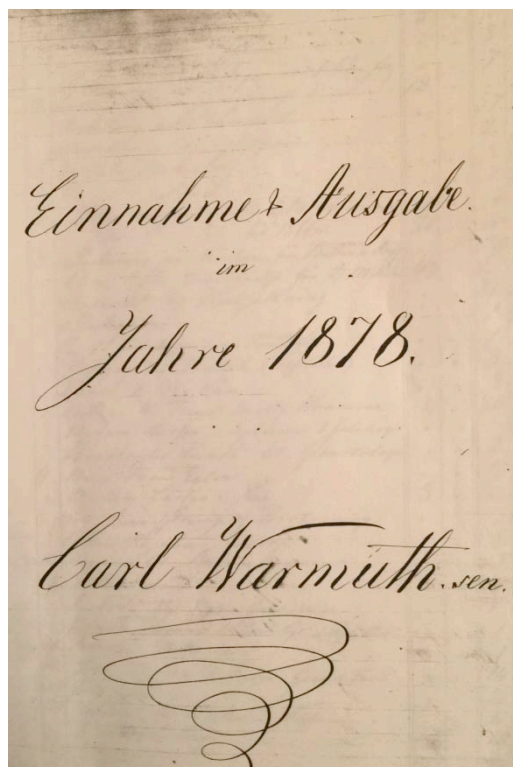 Einnahme & Ausgabe.
im
Jahre 1878.
Carl Warmuth. sen.